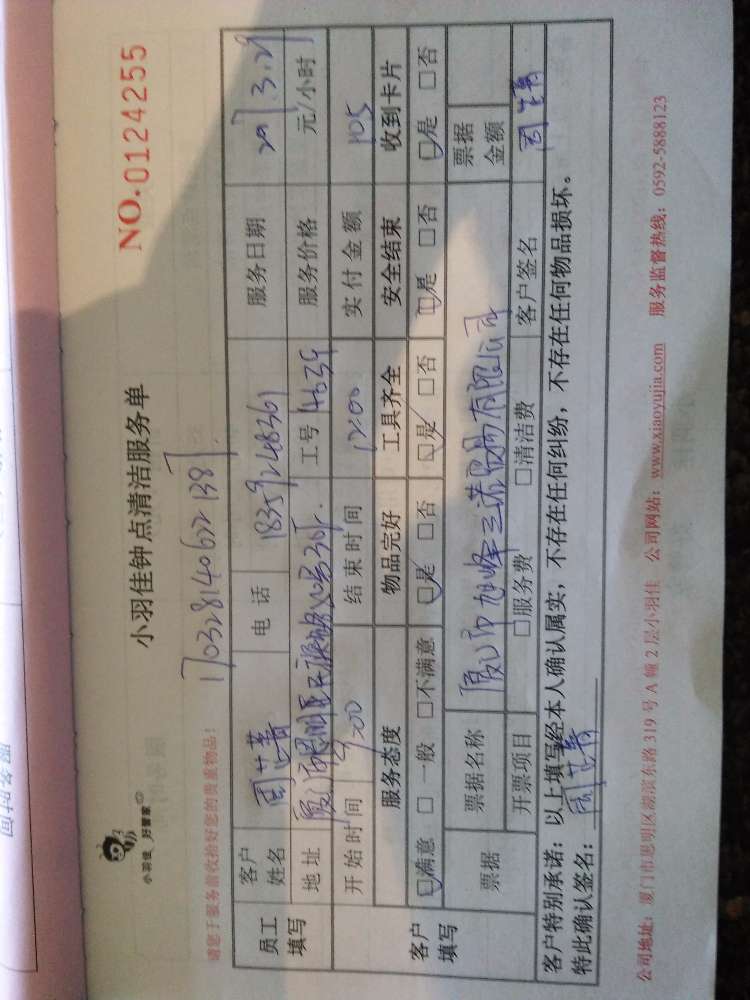 小羽佳 好管家
小羽佳钟点清洁服务单
NO.0124255
1703281406221387
请您于服务前收拾好您的贵重物品!
员工填写 客户姓名 电话 18359248361 服务日期 2017.3.29
地址 工号 4639 服务价格 元/小时
开始时间 9:00 结束时间 12:00 实付金额 105
客户填写 服务态度 物品完好 工具齐全 安全结束 收到卡片
☑满意 □一般 □不满意 ☑是 □否 ☑是 □否 ☑是 □否 ☑是 □否
票据 票据名称 厦门市旭峰三荣贸易有限公司 票据金额
开票项目 □服务费 □清洁费 客户签名
客户特别承诺:以上填写经本人确认属实,不存在任何纠纷,不存在任何物品损坏。
特此确认签名:
公司地址:厦门市思明区湖滨东路 319 号 A 幢 2 层小羽佳 公司网站:www.xiaoyujia.com 服务监督热线:0592-5888123
服务时间